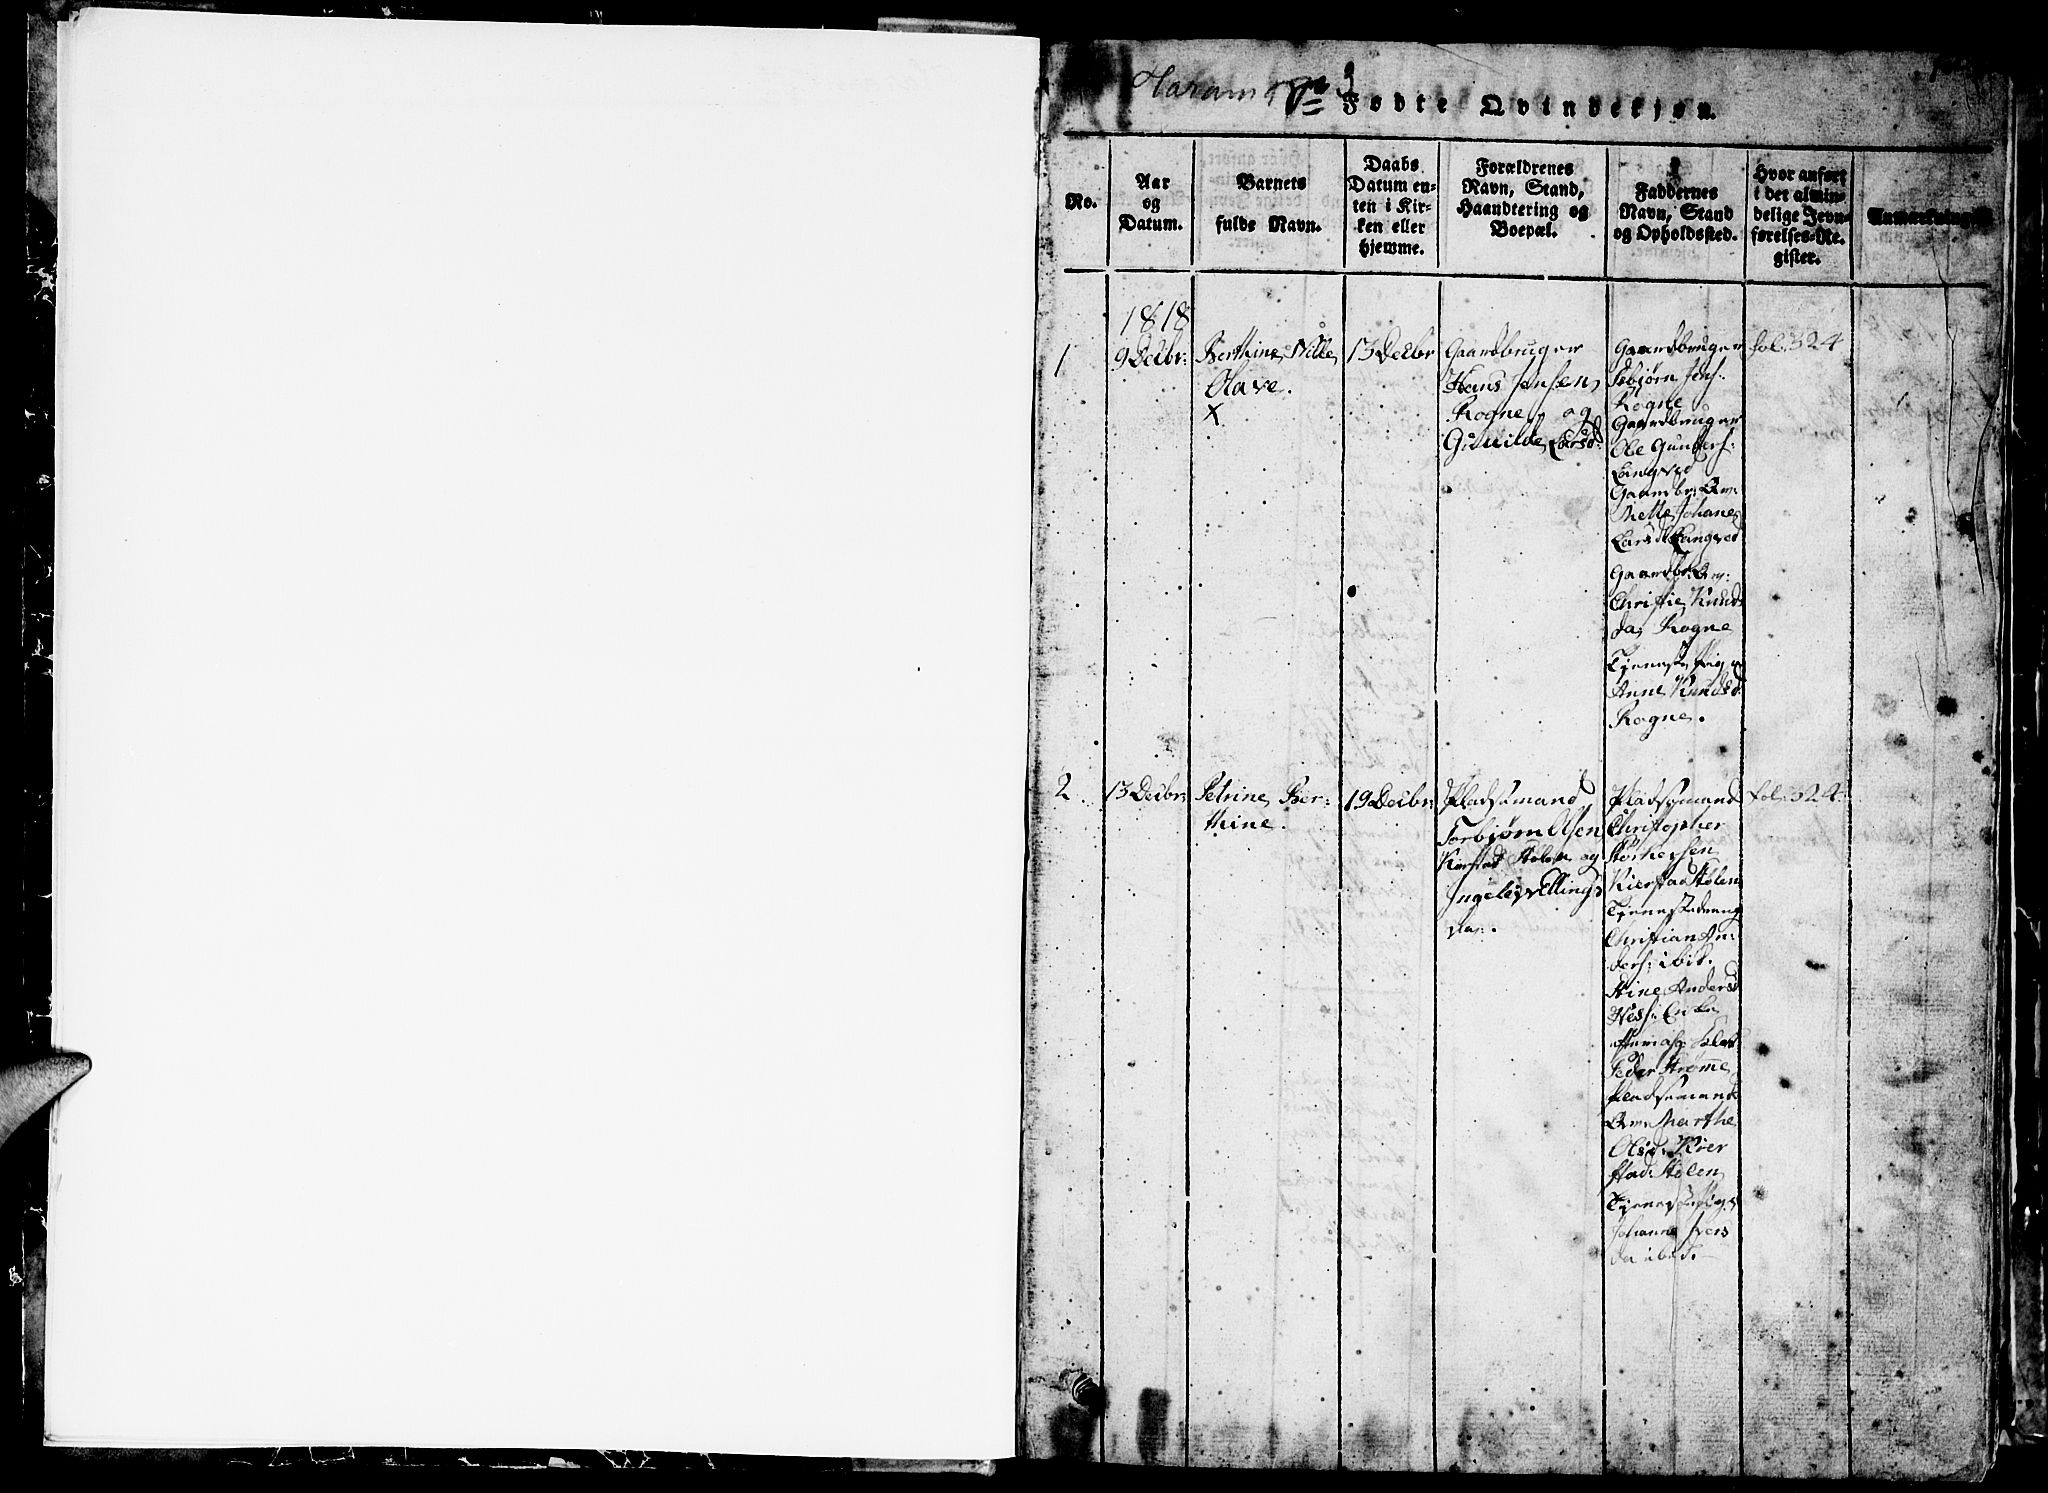 Haram
Fødte Qvindekjøn.
No.
Aar
og
Datum.
Barnets
fulde Navn.
Daabs
Datum en-
ten i Kir-
ken eller
hjemme.
Forældrenes
Navn, Stand,
Haandtering og
Boepæl.
Faddernes
Navn, Stand
og Opholdssted.
Hvor anført
i det almin-
delige Jevn-
førelses-Re-
gister.
Anmærkning
1818
1
9 Decbr:
Berthine Nille
Olave.
X
13 Decbr
Gaardbruger
Hans Jensen
Rogne, og
Gunilde Larsd:
Gaardbruger
Esbjørn Jens:
Rogne
Gaardbruger
Ole Gunders:
Langved
Gaardbr: Qv:
Mette Johane
Larsd Langved
Gaardbr: Qv:
Christie Knuds
da: Rogne
Tjeneste Pige
Anne Knudsd:
Rogne.
fol: 324
2
13 Decbr:
Petrine Ber-
thine.
19 Decbr:
Pladsmand
Torbjørn Olsen
Kierstad Stolen og
Ingelev Ellings
da:.
Pladsmand
Christopher
Kierstad Stolen
Tjenestedreng
Christian An-
ders: ibid.
Stine Anders
Peder Strømme
Pladsemands
Qv: Marthe
Olsd: Kier
stad Stolen
Tjeneste Pige
Johanne Ivers
da ibid.
fol: 324